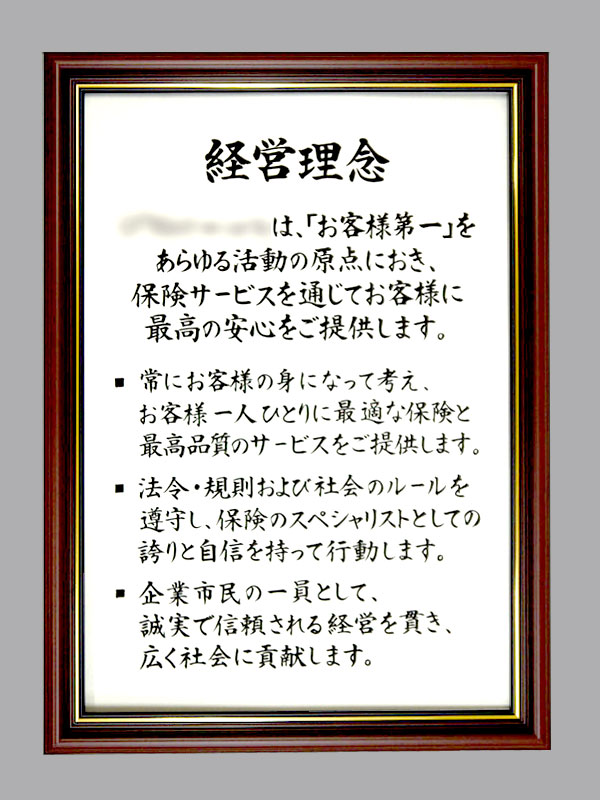 経営理念
は、「お客様第一」を
あらゆる活動の原点におき、
保険サービスを通じてお客様に
最高の安心をご提供します。
■ 常にお客様の身になって考え、
お客様一人ひとりに最適な保険と
最高品質のサービスをご提供します。
■ 法令・規則および社会のルールを
遵守し、保険のスペシャリストとしての
誇りと自信を持って行動します。
■ 企業市民の一員として、
誠実で信頼される経営を貫き、
広く社会に貢献します。